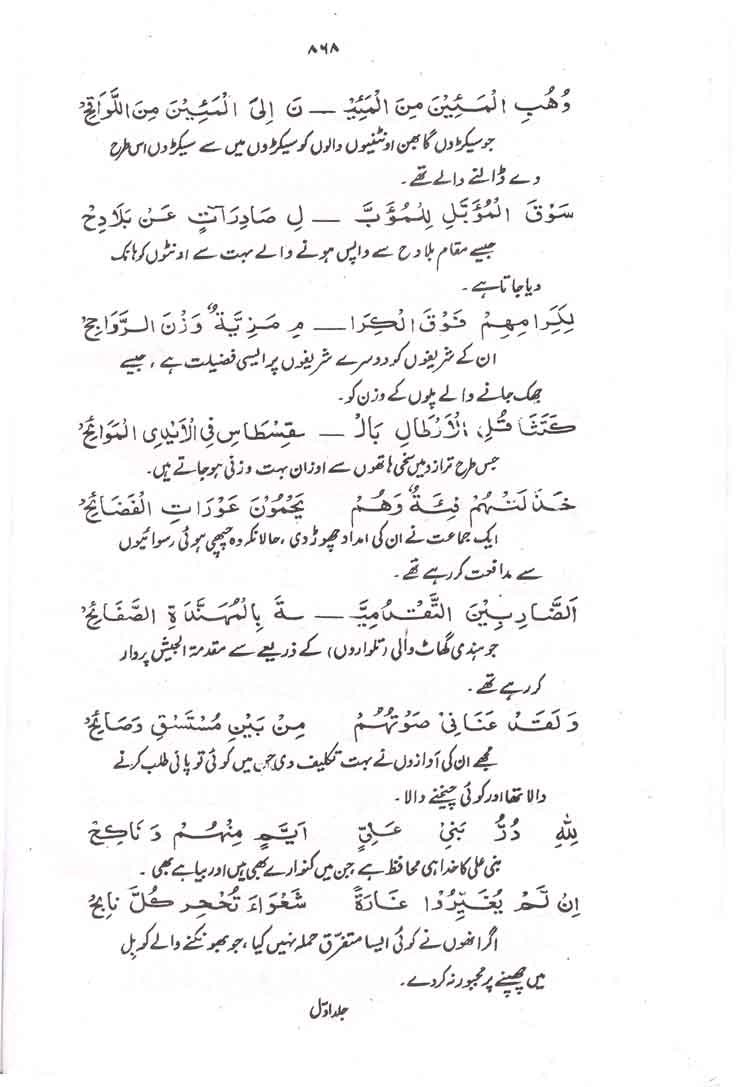 ۸۶۸
وُهُبِ الْمَئِيْنَ مِنَ الْمَئِيْـ ـــ نَ اِلَى الْمَئِيْنَ مِنَ اللَّوَاقِحْ
جو سیکڑوں گابھن اونٹنیوں والوں کو سیکڑوں میں سے سیکڑوں اس طرح
دے ڈالنے والے تھے۔
سَوْقَ الْمُؤَبَّلِ لِلْمُؤَبَّـ ـــ لِ صَادِرَاتٍ عَنْ بَلَادِحْ
جیسے مقام بلادح سے واپس ہونے والے بہت سے اونٹوں کو ہانک
دیا جاتا ہے۔
لِكَرَامِهِمْ فَوْقَ الْكِرَا ـــ مِ مَزِيَّةٌ وَزْنَ الرَّوَاجِحْ
ان کے شریفوں کو دوسرے شریفوں پر ایسی فضیلت ہے، جیسے
جھک جانے والے پلوں کے وزن کو۔
كَتَثَاقُلِ الْأَرْطَالِ بَالْـ ـــ قِسْطَاسِ فِي الْأَيْدِي الْمَوَائِحْ
جس طرح ترازو میں سخی ہاتھوں سے اوزان بہت وزنی ہو جاتے ہیں۔
خَذَلَتْهُمْ فِئَةٌ وَهُمْ يَحْمُوْنَ عَوْرَاتِ الْفَضَائِحْ
ایک جماعت نے ان کی امداد چھوڑ دی، حالانکہ وہ چھپی ہوئی رسوائیوں
سے مدافعت کر رہے تھے۔
اَلضَّارِبِيْنَ التَّقْدُمِيَّـ ـــ ةَ بِالْمُهَنَّدَةِ الصَّفَائِحْ
جو ہندی گھاٹ والی (تلواروں) کے ذریعے سے مقدمۃ الجیش پر وار
کر رہے تھے۔
وَلَقَدْ عَنَانِيْ صَوْتُهُمْ مِنْ بَيْنِ مُسْتَسْقٍ وَصَائِحْ
مجھے ان کی آوازوں نے بہت تکلیف دی جن میں کوئی تو پانی طلب کرنے
والا تھا اور کوئی چیخنے والا۔
لِلّٰهِ دُرُّ بَنِيْ عَلِيٍّ اَيِّمٍ مِنْهُمْ وَنَاكِحْ
بنی علی کا خدا ہی محافظ ہے، جن میں کنوارے بھی ہیں اور بیاہے بھی۔
اِنْ لَمْ يُغَيِّرُوْا غَارَةً شَعْوَاءَ تُجْحِرُ كُلَّ نَابِحْ
اگر انھوں نے کوئی ایسا متفرق حملہ نہیں کیا، جو بھونکنے والے کو بل
میں چھپنے پر مجبور نہ کر دے۔
جلد اوّل